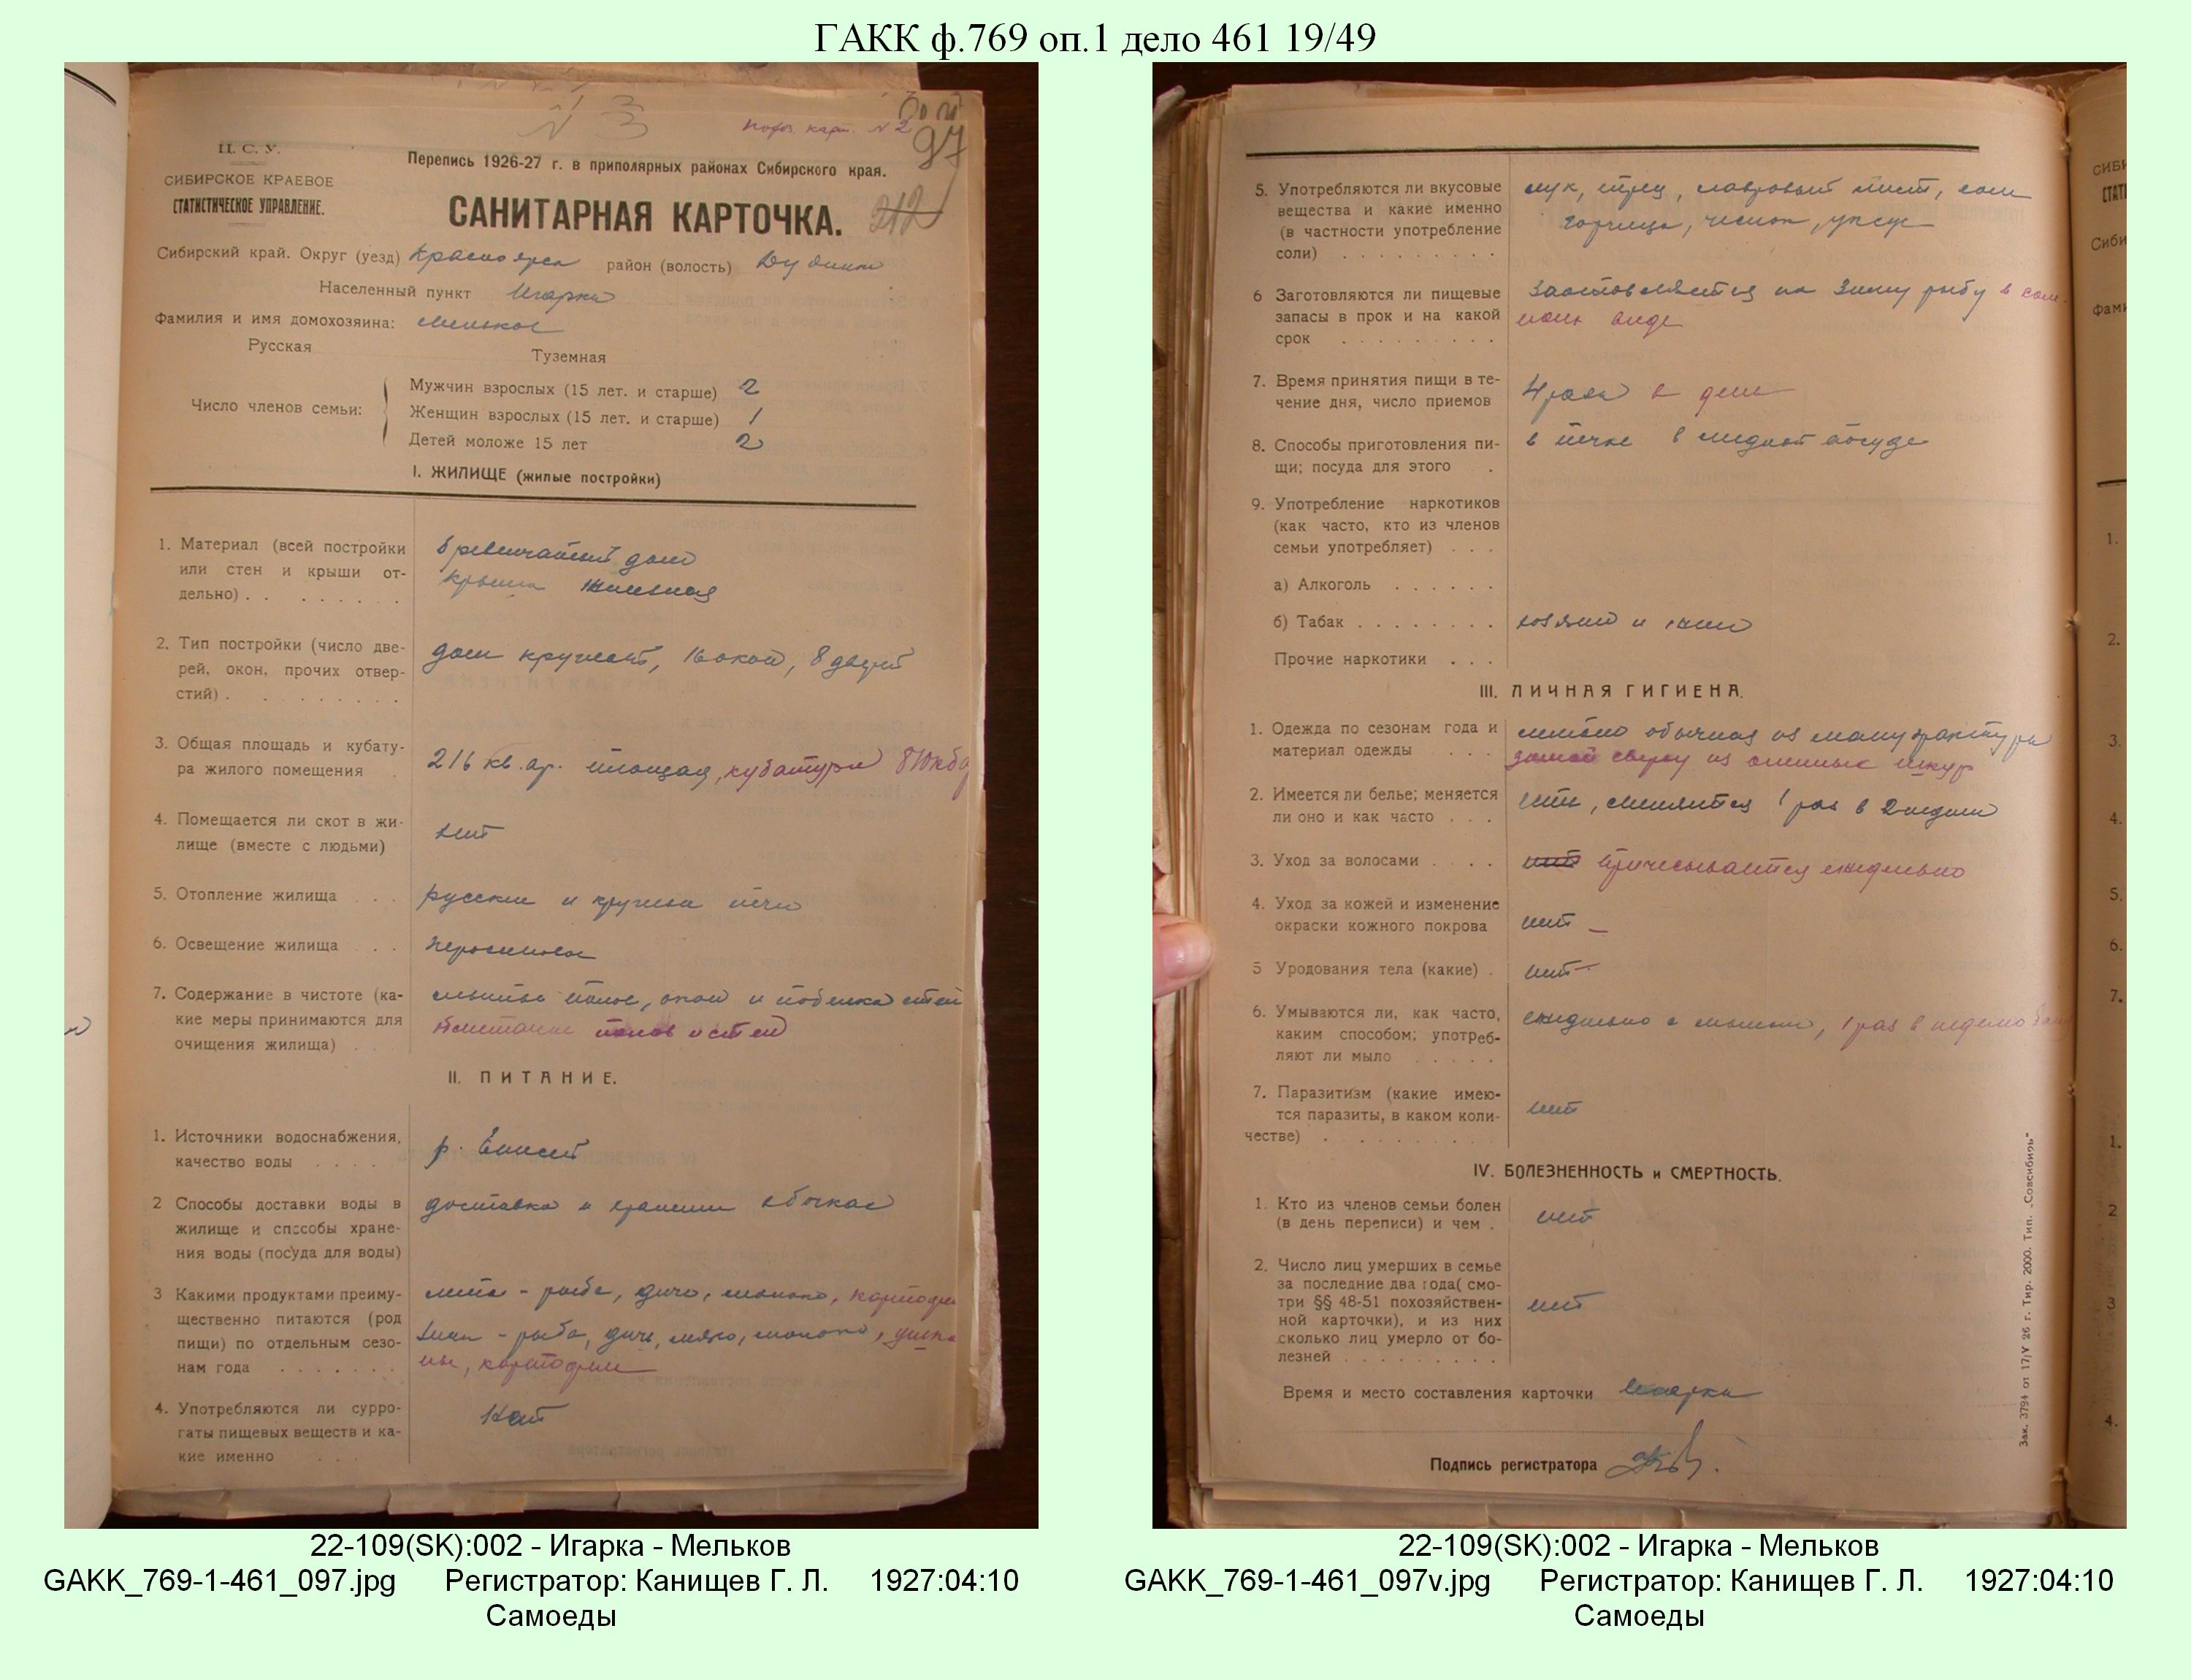 ГАКК ф.769 оп.1 дело 461 19/49
№ 3
карт. № 2
97
Ц. С. У.
СИБИРСКОЕ КРАЕВОЕ
СТАТИСТИЧЕСКОЕ УПРАВЛЕНИЕ.
Перепись 1926-27 г. в приполярных районах Сибирского края.
САНИТАРНАЯ КАРТОЧКА.
212
Сибирский край. Округ (уезд) Красноярск район (волость) Дудинк
Населенный пункт Игарка
Фамилия и имя домохозяина: Мельков
Русская
Туземная
Число членов семьи:
Мужчин взрослых (15 лет. и старше) 2
Женщин взрослых (15 лет. и старше) 1
Детей моложе 15 лет 2
I. ЖИЛИЩЕ (жилые постройки)
1. Материал (всей постройки
или стен и крыши от-
дельно) . . . . . . . .
бревенчатый дом
крыша железная
2. Тип постройки (число две-
рей, окон, прочих отвер-
стий) . . . . . . . . .
дом 16 окон, 8 дверей
3. Общая площадь и кубату-
ра жилого помещения .
216 кв. ар. площадь, кубатура 810 куб
4. Помещается ли скот в жи-
лище (вместе с людьми)
нет
5. Отопление жилища . . .
русские и круглые печи
6. Освещение жилища . . .
керосиновое
7. Содержание в чистоте (ка-
кие меры принимаются для
очищения жилища) . .
мытье полов, окон и побелка стен
полов и стен
II. ПИТАНИЕ.
1. Источники водоснабжения,
качество воды . . . .
р. Енисей
2 Способы доставки воды в
жилище и способы хране-
ния воды (посуда для воды)
доставка и хранение в бочках
3 Какими продуктами преиму-
щественно питаются (род
пищи) по отдельным сезо-
нам года . . . . . . .
лето - рыба, дичь, молоко, картофель
зима - рыба, дичь, мясо, молоко,
картофель
4. Употребляются ли сурро-
гаты пищевых веществ и ка-
кие именно . . .
нет
22-109(SK):002 - Игарка - Мельков
GAKK_769-1-461_097.jpg Регистратор: Канищев Г. Л. 1927:04:10
Самоеды
5. Употребляются ли вкусовые
вещества и какие именно
(в частности употребление
соли) . . . . . . . . .
лук, перец, лавровый лист, соль
горчица, чеснок, уксус
6 Заготовляются ли пищевые
запасы в прок и на какой
срок . . . . . . . . .
Заготовляется на зиму рыбу в соле-
ном виде
7. Время принятия пищи в те-
чение дня, число приемов
4 раза в день
8. Способы приготовления пи-
щи; посуда для этого .
в печке в медной посуде
9. Употребление наркотиков
(как часто, кто из членов
семьи употребляет) . . .
а) Алкоголь . . . . . .
б) Табак . . . . . . . .
хозяин и
Прочие наркотики . . .
III. ЛИЧНАЯ ГИГИЕНА.
1. Одежда по сезонам года и
материал одежды . . .
летом обычная из мануфактуры
зимой сверху из оленьих шкур
2. Имеется ли белье; меняется
ли оно и как часто . . .
есть, меняется 1 раз в 2 недели
3. Уход за волосами . . . .
нет причесывается ежедневно
4. Уход за кожей и изменение
окраски кожного покрова
нет -
5 Уродования тела (какие) .
нет
6. Умываются ли, как часто,
каким способом; употреб-
ляют ли мыло . . . . .
ежедневно с мылом, 1 раз в неделю баня
7. Паразитизм (какие имею-
тся паразиты, в каком коли-
честве) . . . . . . . . .
нет
IV. БОЛЕЗНЕННОСТЬ и СМЕРТНОСТЬ.
1. Кто из членов семьи болен
(в день переписи) и чем .
нет
2. Число лиц умерших в семье
за последние два года( смо-
три §§ 48-51 похозяйствен-
ной карточки), и из них
сколько лиц умерло от бо-
лезней . . . . . . . . .
нет
Время и место составления карточки Игарка
Подпись регистратора
Зак. 3794 от 17/V 26 г. Тир. 2000. Тип. „Совсибирь"
22-109(SK):002 - Игарка - Мельков
GAKK_769-1-461_097v.jpg Регистратор: Канищев Г. Л. 1927:04:10
Самоеды